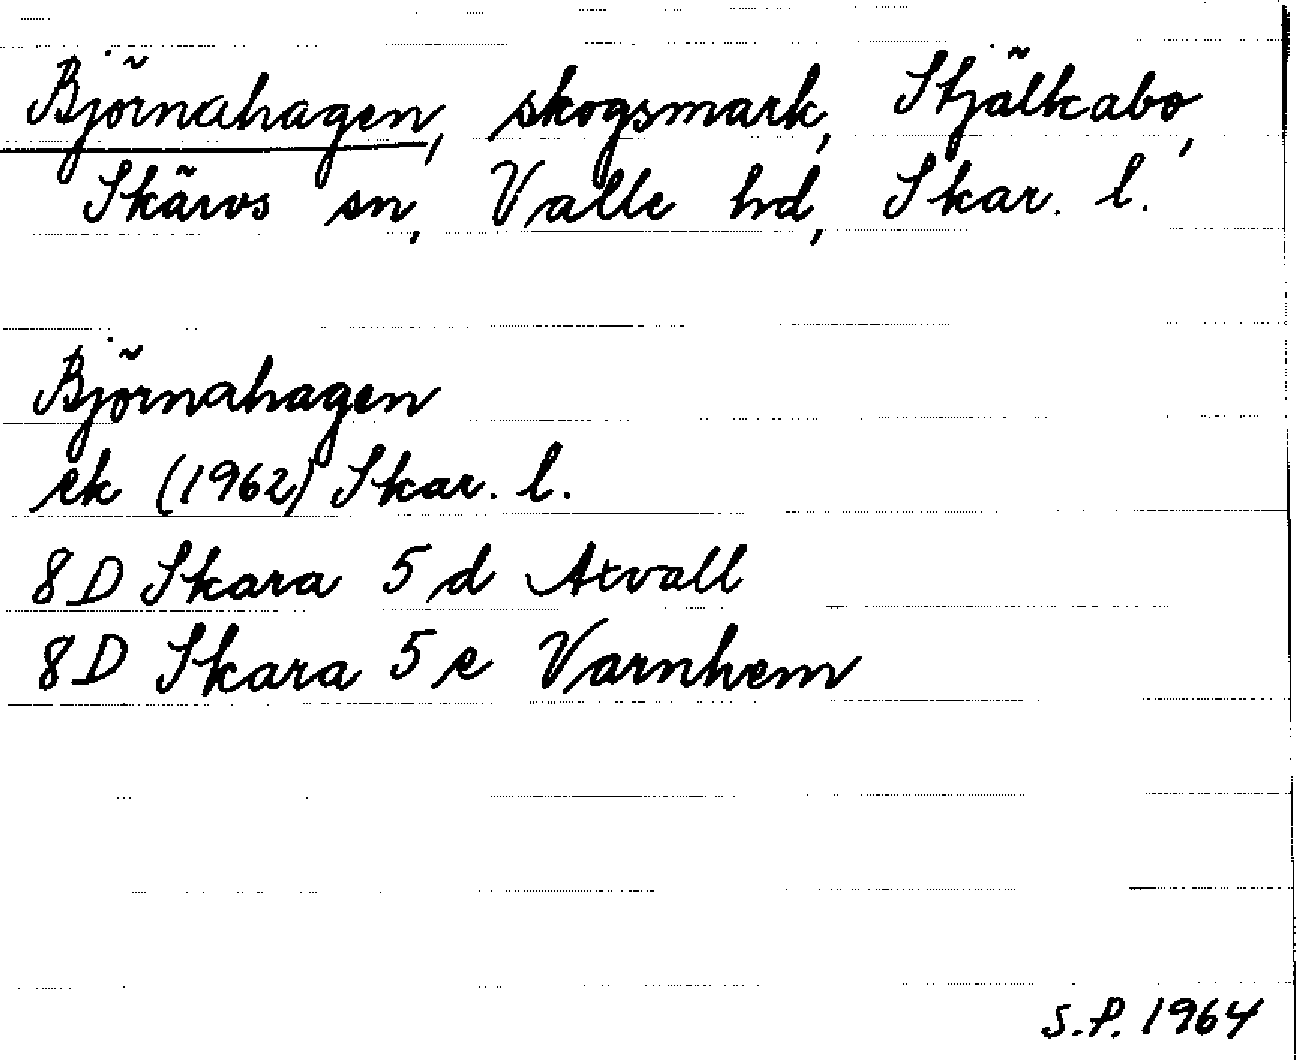 Björnahagen, skogsmark, Stjälkabo,
Skärvs sn, Valle hd, Skar. l.
Björnahagen
ek (1962) Skar. l.
8D Skara 5 d Axvall
8D Skara 5 e Varnhem
S.P. 1964